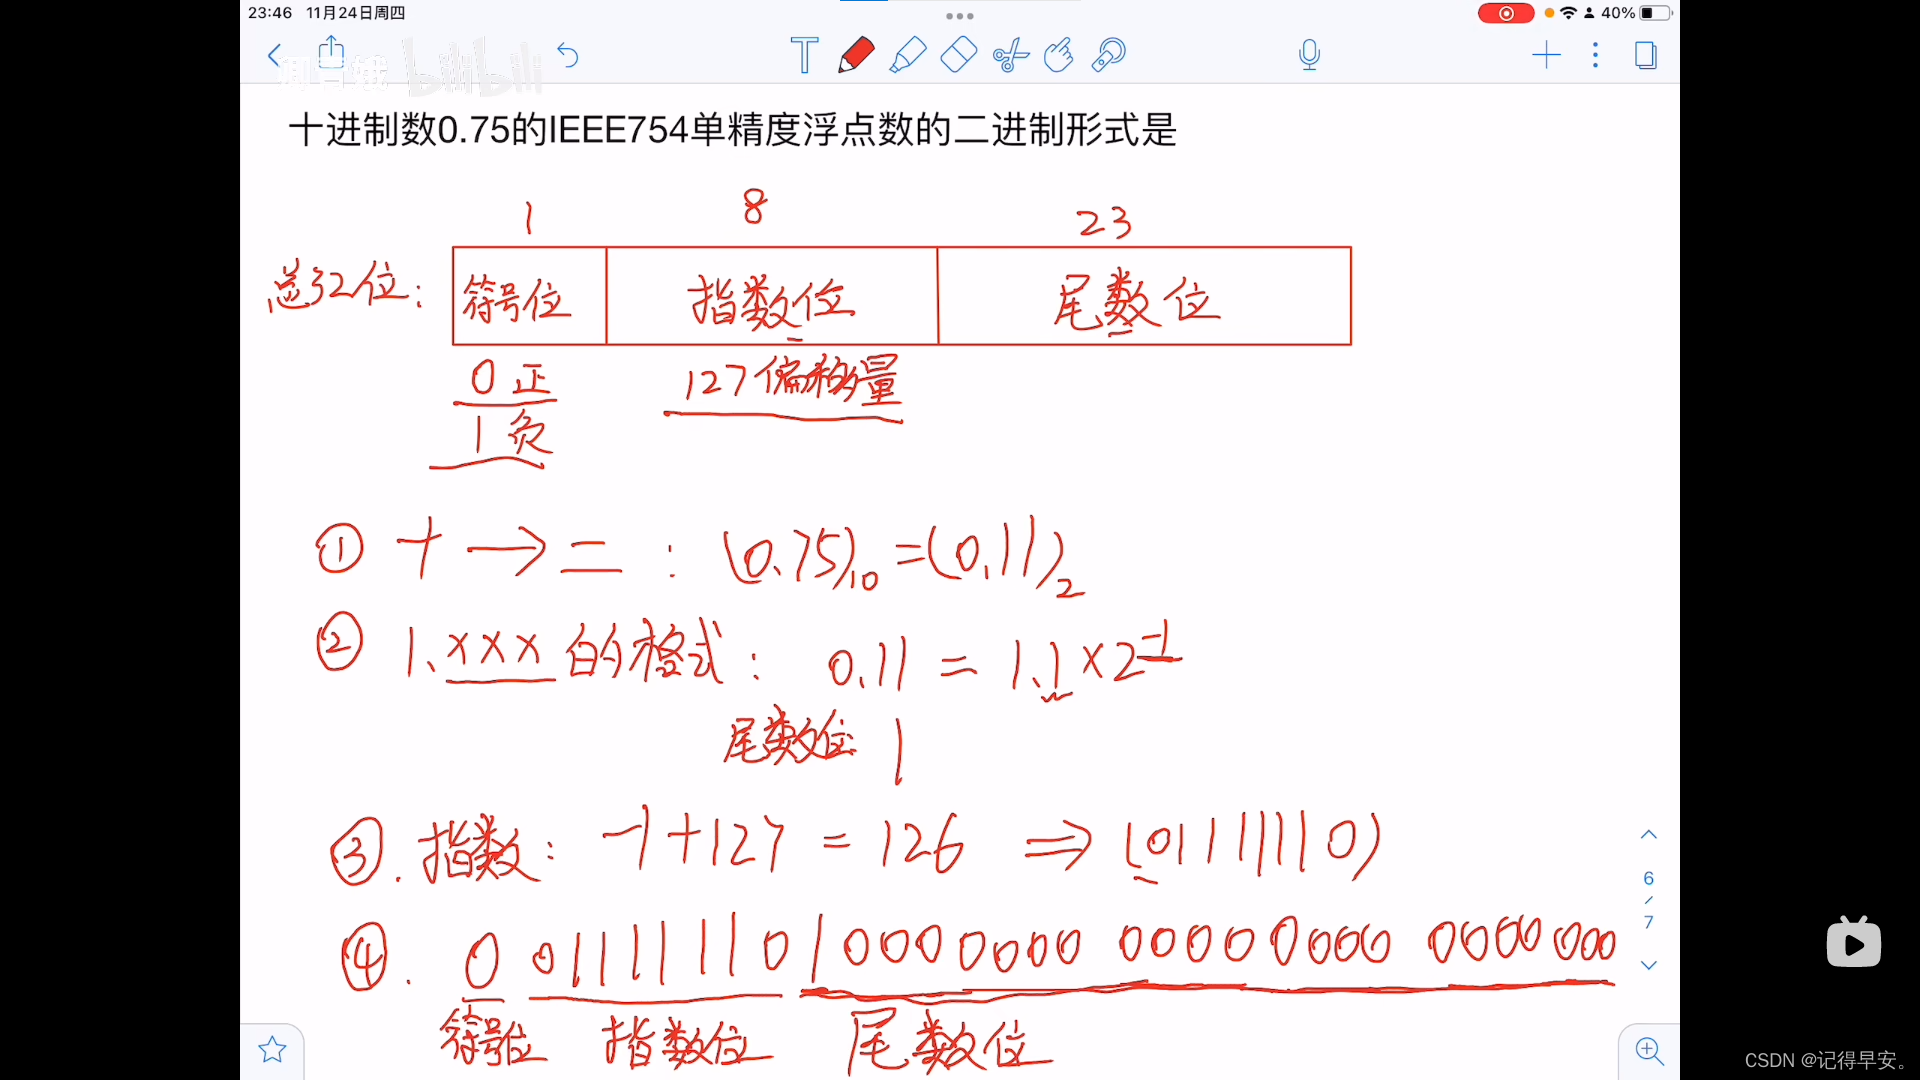 23:46 11月24日周四
40%
bilibili
十进制数0.75的IEEE754单精度浮点数的二进制形式是
1 8 23
总32位: 符号位 指数位 尾数位
0 正 127偏移量
1 负
① 十→二: (0.75)10=(0.11)2
② 1.xxx的格式: 0.11 = 1.1×2^-1
尾数位 1
③. 指数: -1+127 = 126 ⇒ (01111110)
6
7
④. 0 01111110 1000 0000 00000000 0000000
符号位 指数位 尾数位
CSDN @记得早安。